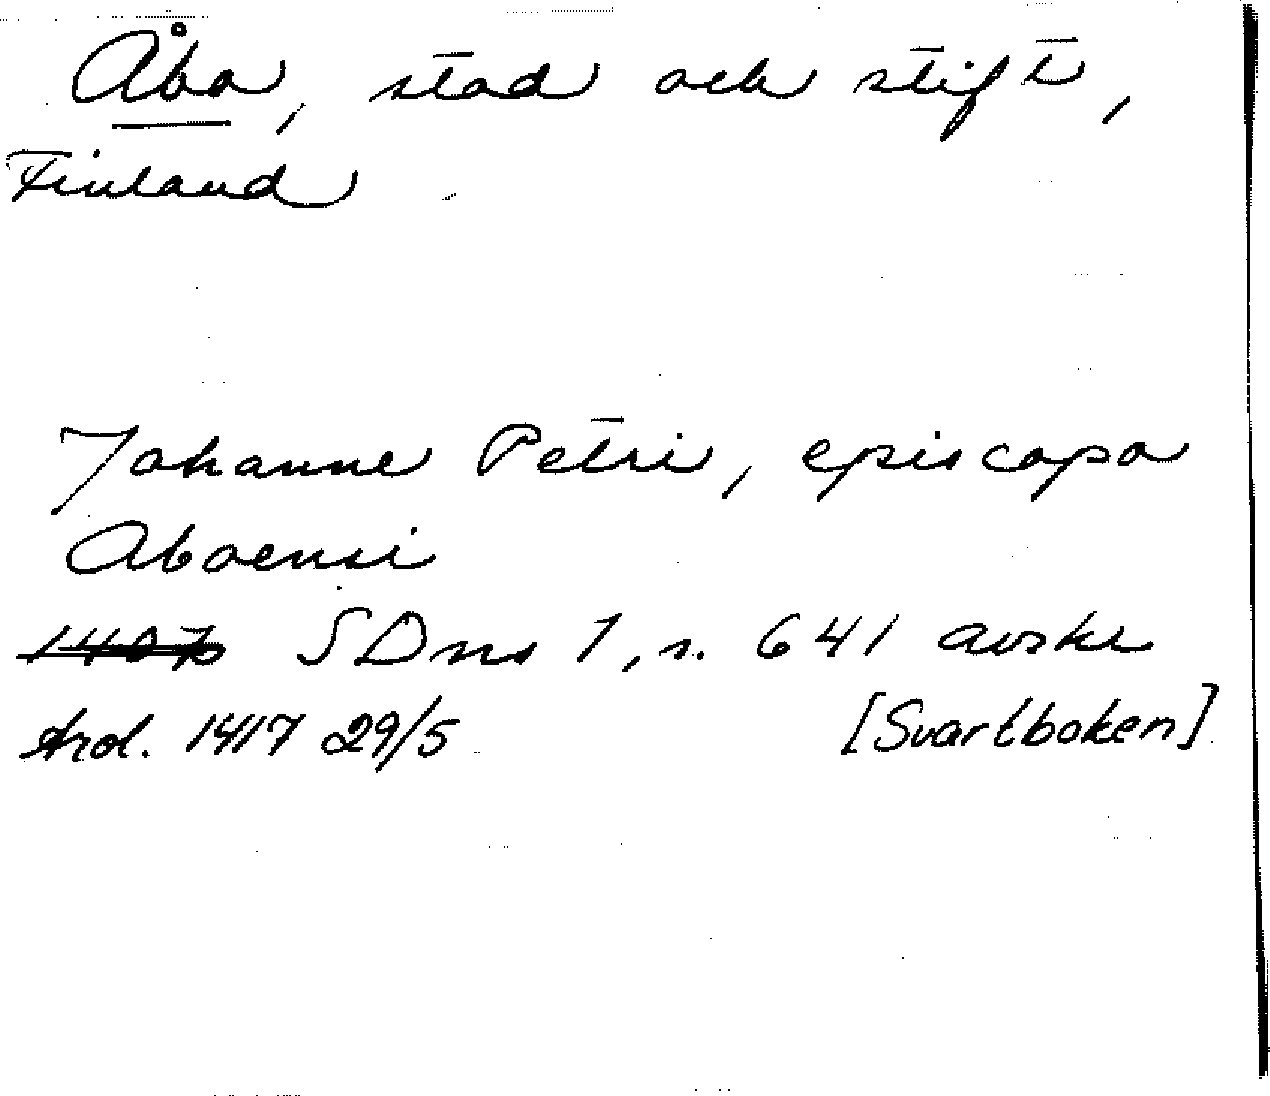 Åbo, stad och stift,
Finland
Johanne Petri, episcopo
Aboensi
1407 SDns 1, s. 641 avskr
Avd. 1417 29/5 [Svartboken]